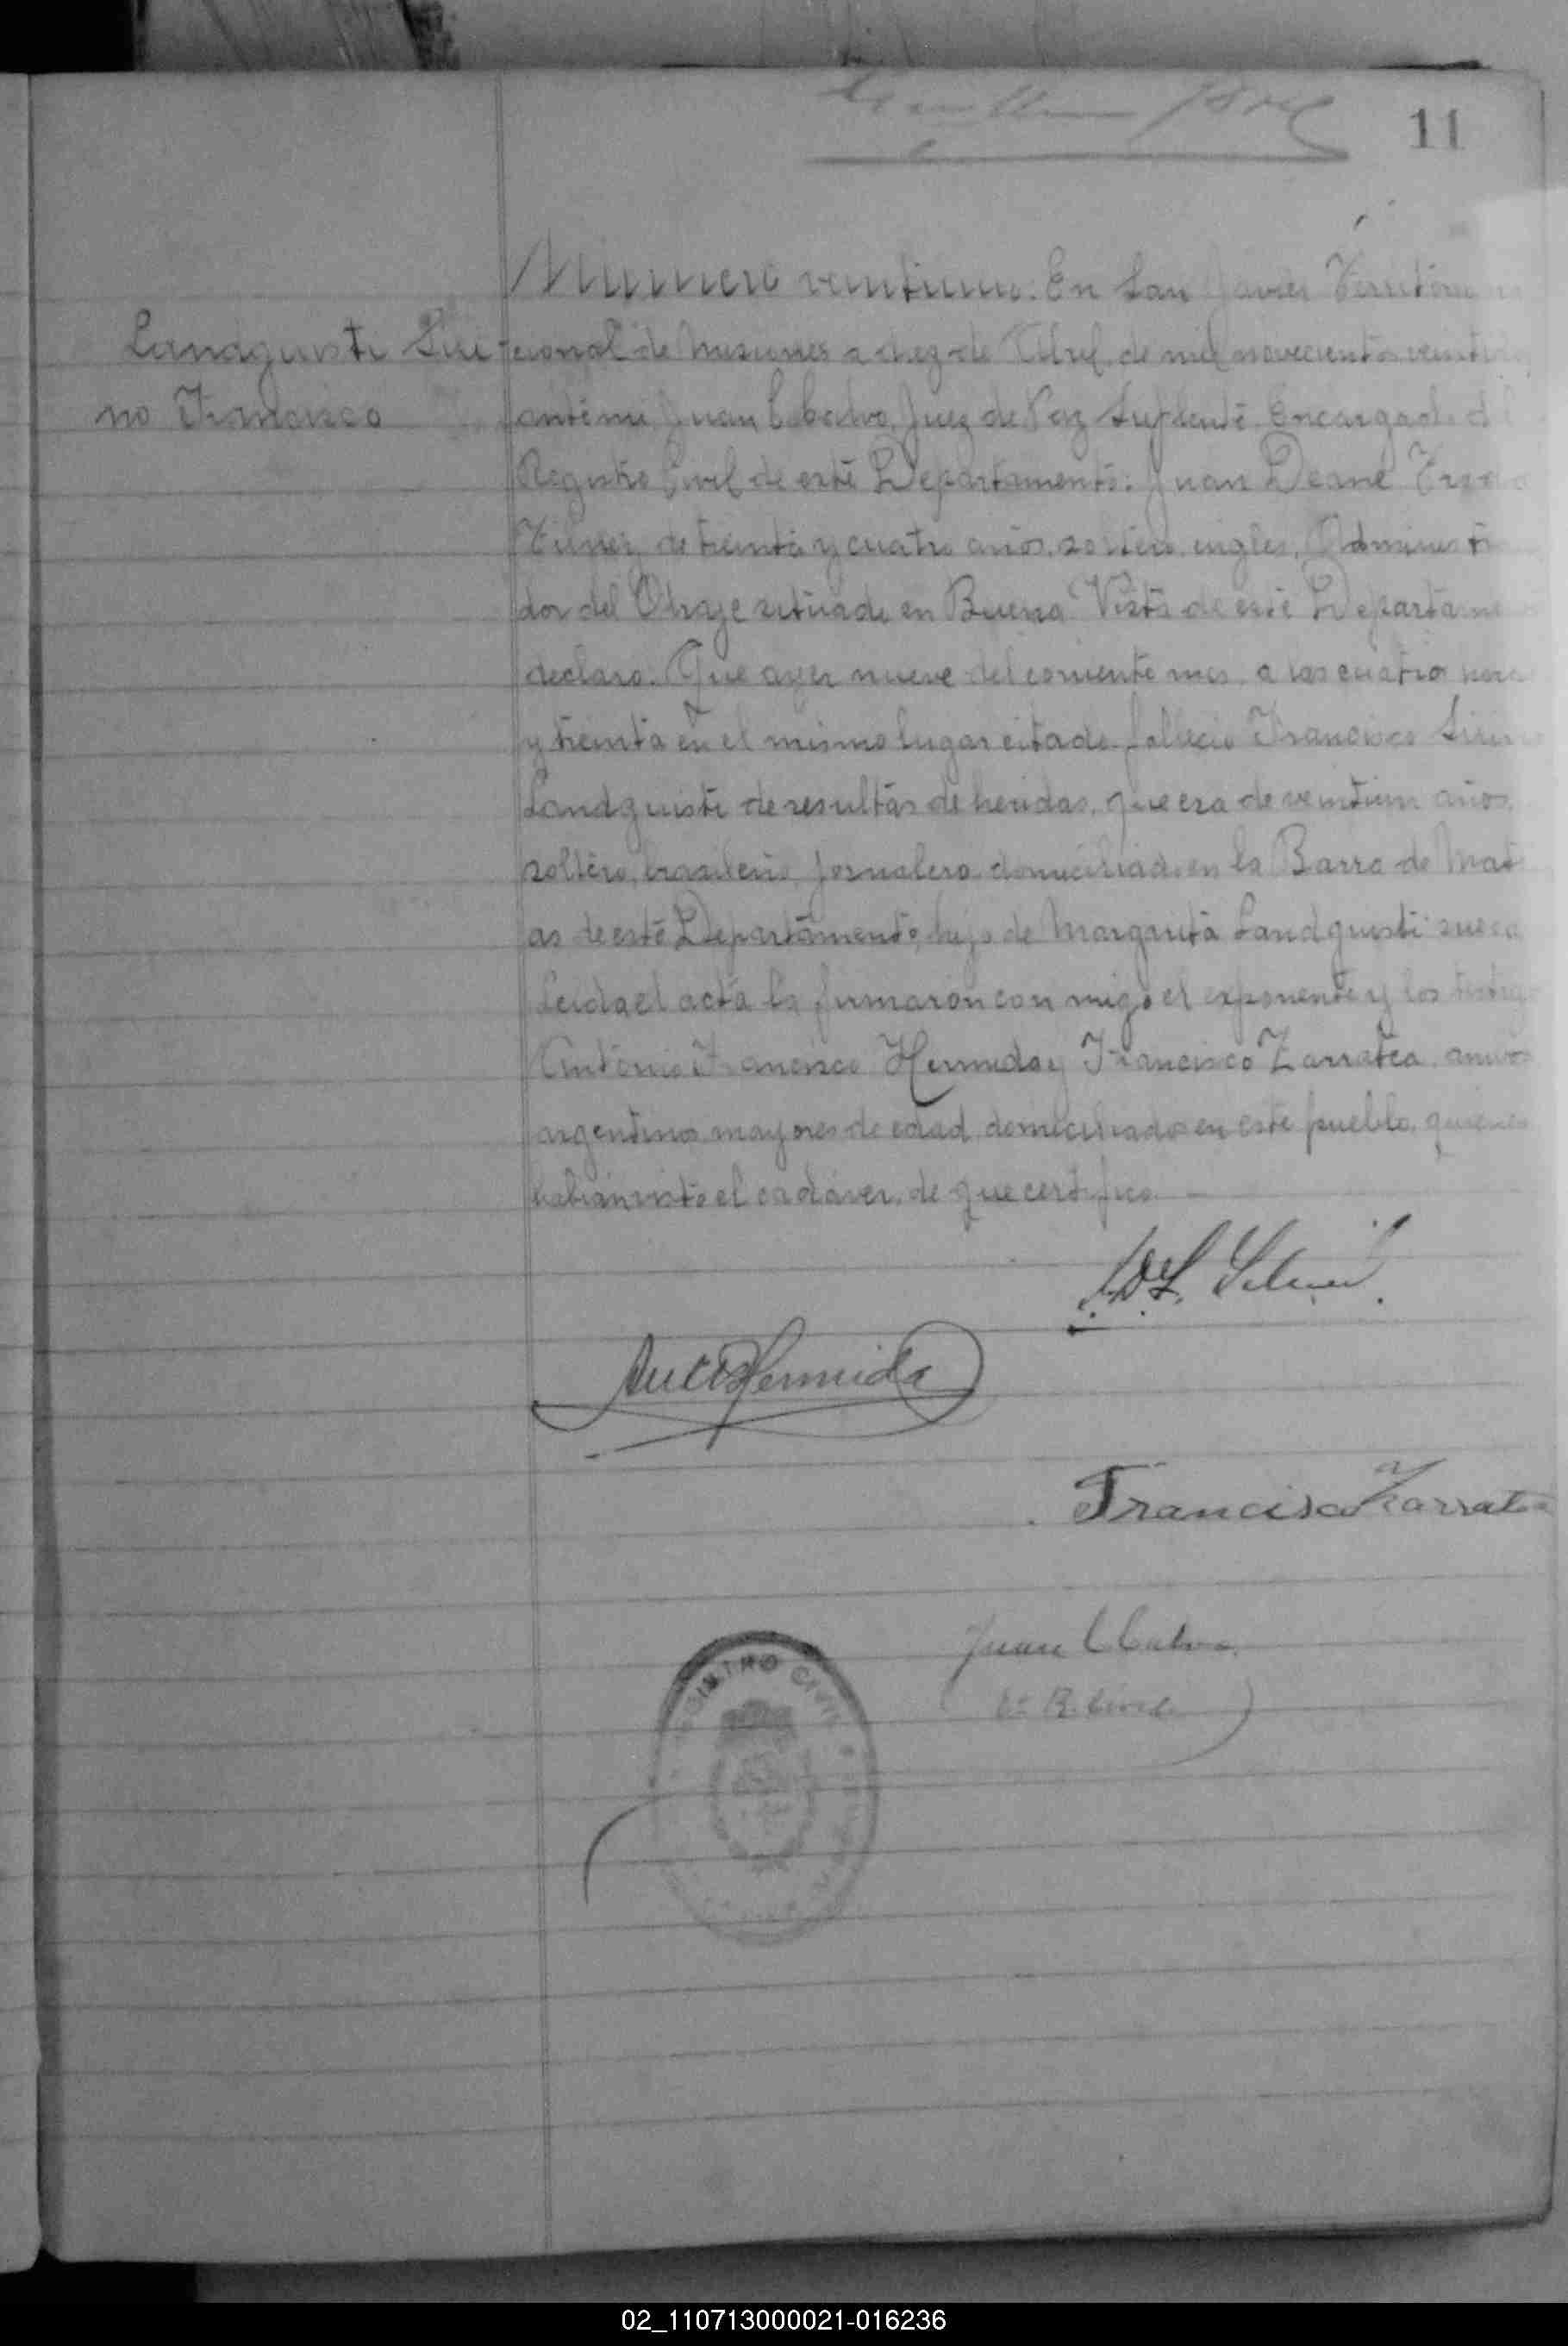 11
Numero veintiuno. En San Javier Territorio
Landquisti Siri
no Francisco
cional de Misiones a diez de Abril de mil novecientos
ante mi Juan C. Calvo, Juez de Paz Suplente Encargado d
Registro Civil de este Departamento: Juan Deane
de treinta y cuatro años, soltero, ingles, Administra
dor del Obraje situado en Buena Vista de este Departame
declaro: Que ayer nueve del corriente mes, a las cuatro hora
y treinta en el mismo lugar citado fallecio Francisco
Landquisti de resultas de heridas, que era de veintiun años,
soltero, brasileño, jornalero domiciliado en la Barra de
as de este Departamento, hijo de Margarita Landquisti sueca
Leida el acta la firmaron con migo el exponente y los testigo
Antonio Francisco Hermida y Francisco Zarratea, ambos
argentinos mayores de edad domiciliados en este pueblo, quienes
habian visto el cadaver, de que certifico.
Hermida
Francisco Zarratea
Juan C Calvo
R. Civil
REGISTRO CIVIL
02_110713000021-016236